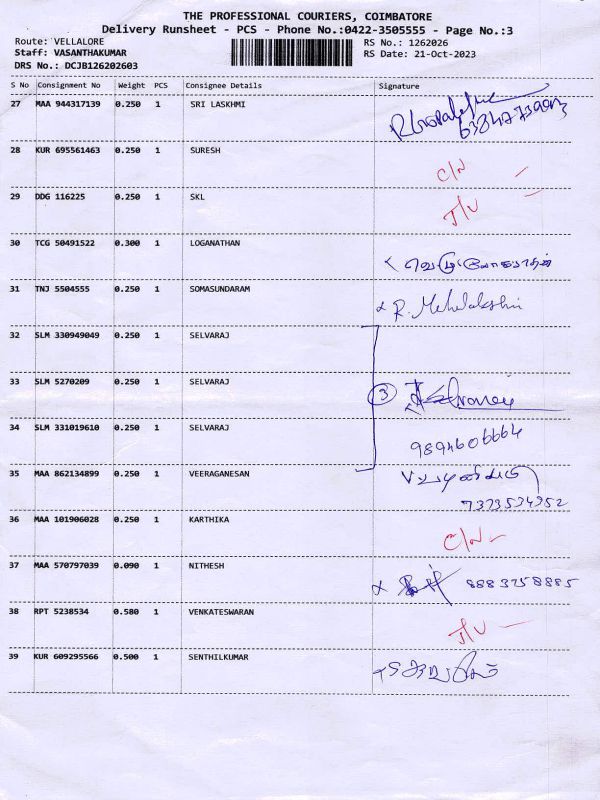 THE PROFESSIONAL COURIERS, COIMBATORE
Delivery Runsheet - PCS - Phone No.:0422-3505555 - Page No.:3
Route: VELLALORE RS No.: 1262026
Staff: VASANTHAKUMAR RS Date: 21-Oct-2023
DRS No.: DCJB126202603
S No Consignment No Weight PCS Consignee Details Signature
27 MAA 944317139 0.250 1 SRI LASKHMI
28 KUR 695561463 0.250 1 SURESH
C/N
29 DDG 116225 0.250 1 SKL
30 TCG 50491522 0.300 1 LOGANATHAN
31 TNJ 5504555 0.250 1 SOMASUNDARAM
R. Mehalakshmi
32 SLM 330949049 0.250 1 SELVARAJ
33 SLM 5270209 0.250 1 SELVARAJ
3
34 SLM 331019610 0.250 1 SELVARAJ
9894606664
35 MAA 862134899 0.250 1 VEERAGANESAN
7373534352
36 MAA 101906028 0.250 1 KARTHIKA
C/N
37 MAA 570797039 0.090 1 NITHESH
8883758885
38 RPT 5238534 0.580 1 VENKATESWARAN
39 KUR 609295566 0.500 1 SENTHILKUMAR